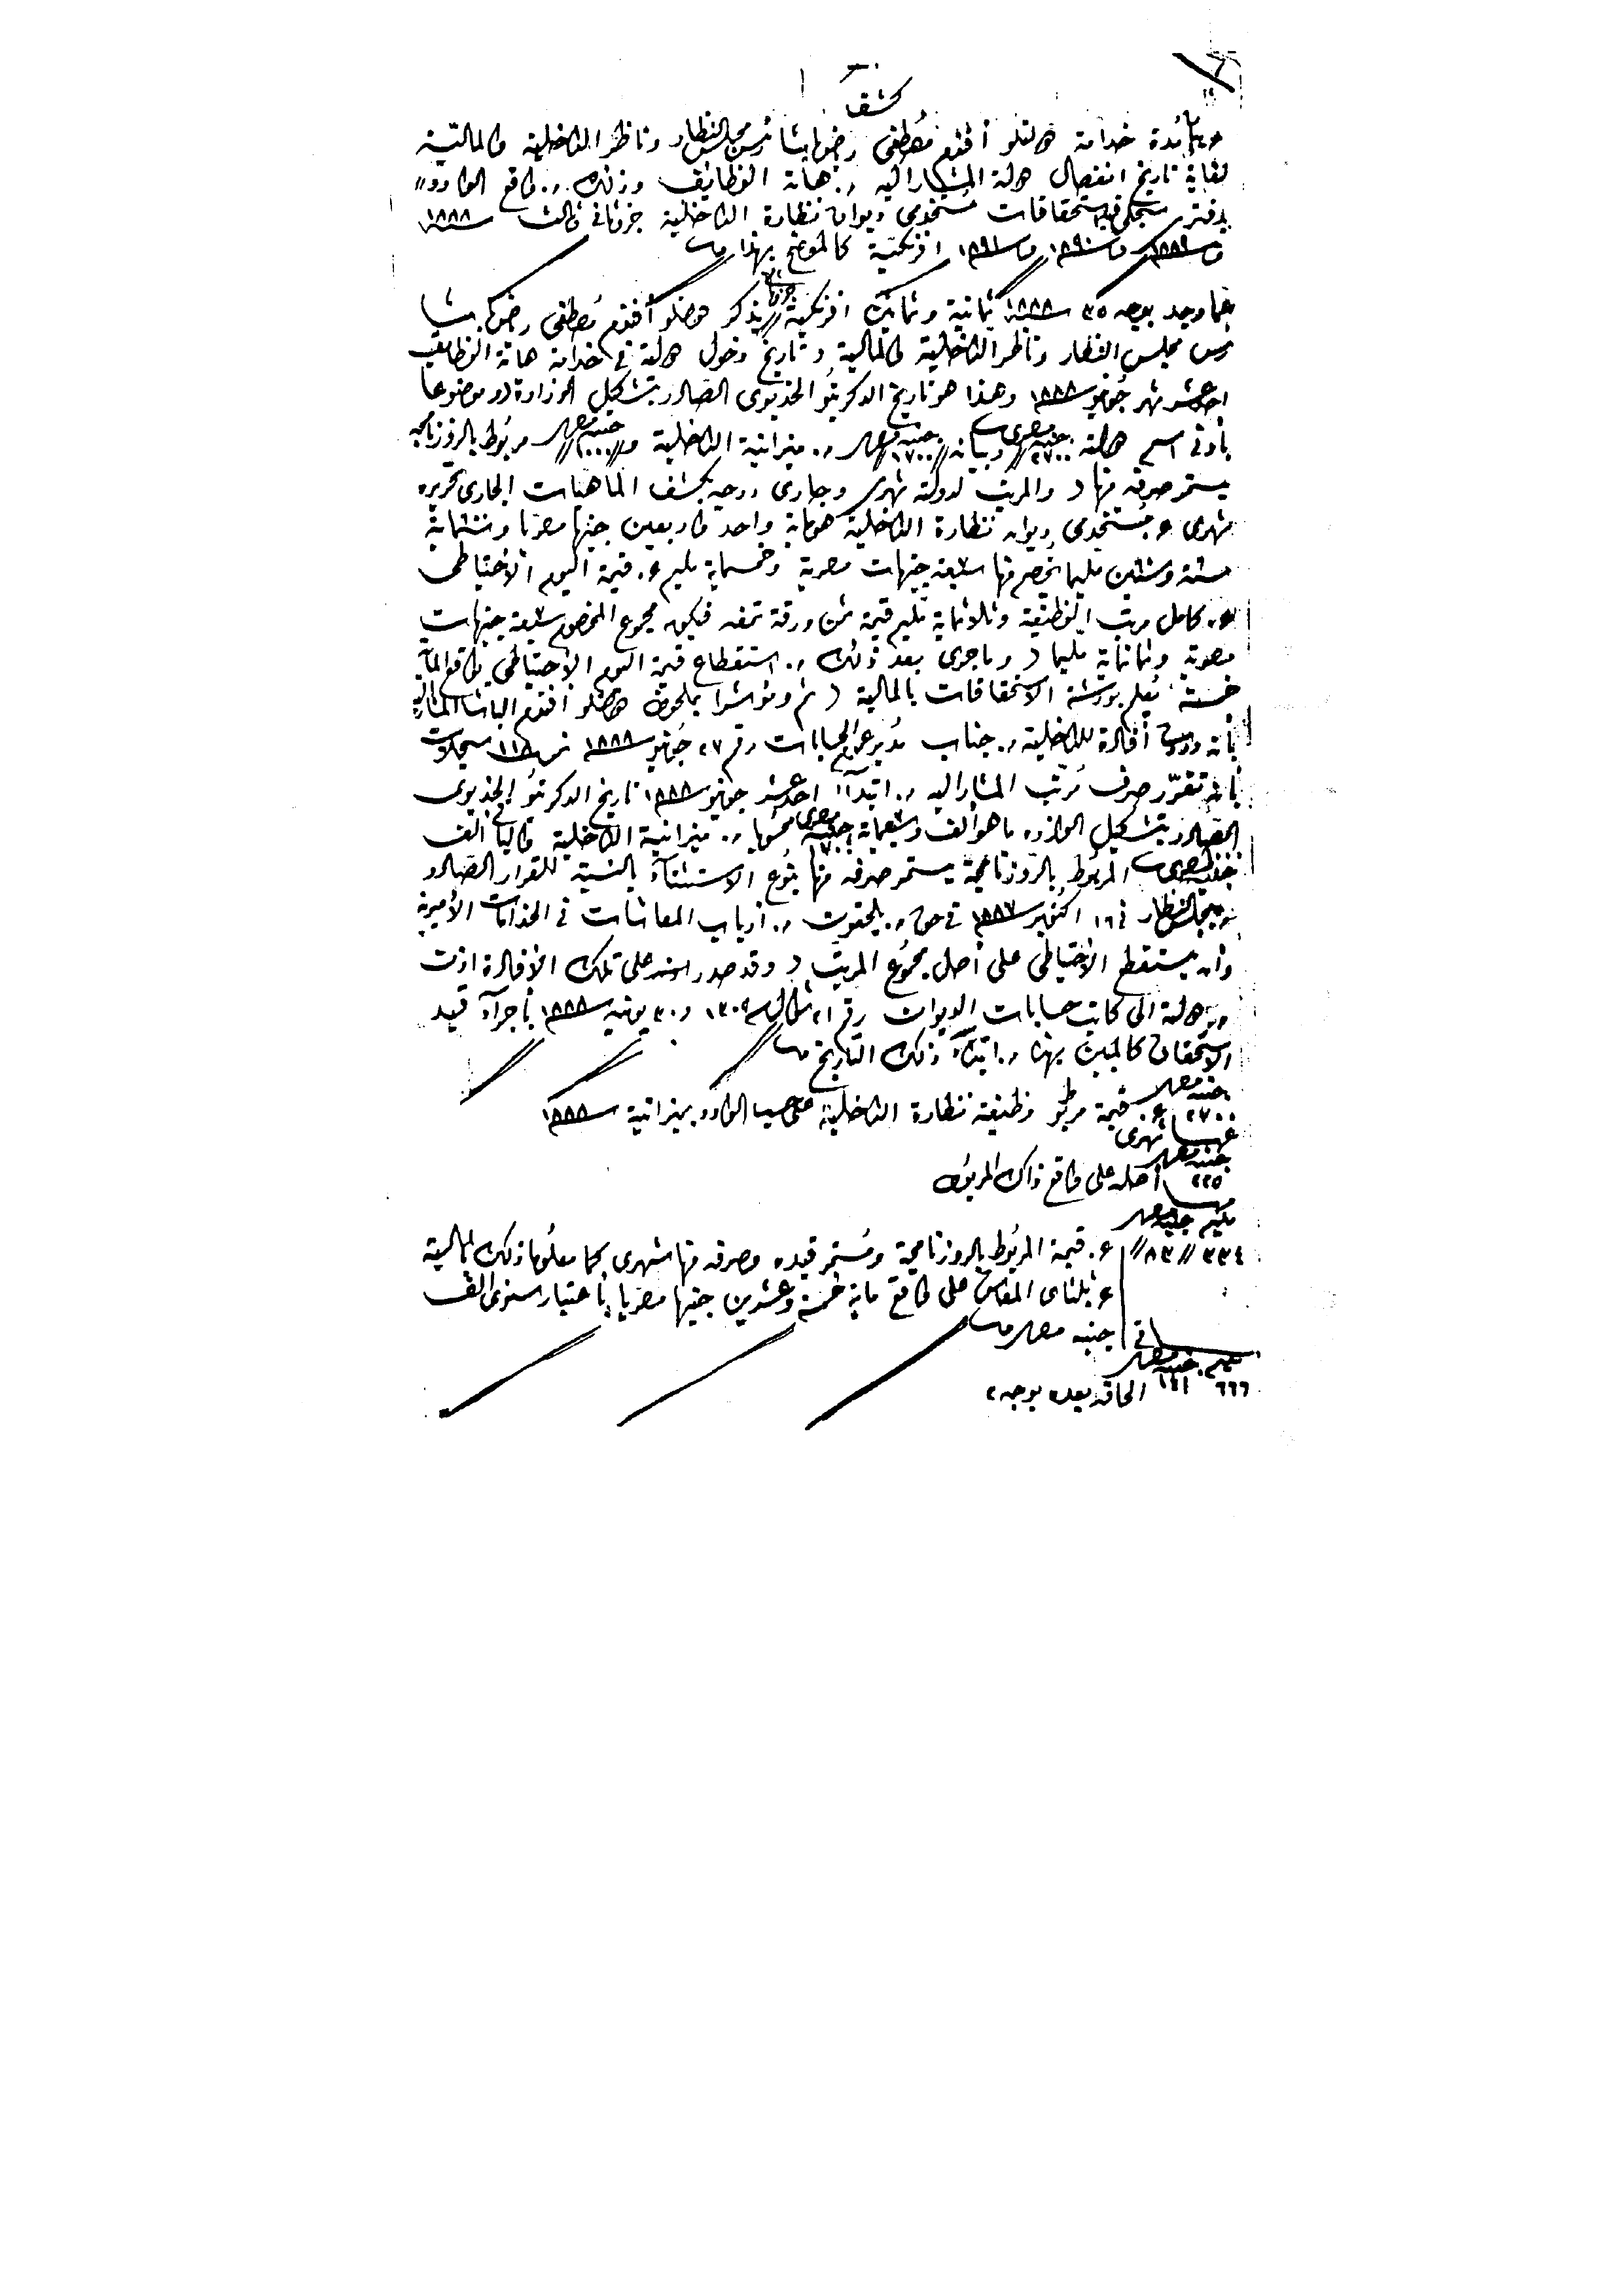 كشف
مدة خدامة دولتلو أفندم مصطفى رياض باشا رئيس مجلس النظار وناظر الداخلية والمالية
لغاية تاريخ انفصال دولة المشار اليه من هاته الوظايف وذلك من واقع الوارد
بدفتر سجل قيد استحقاقات مستخدمى ديوان نظارة الداخلية جزء ثانى ثالث سنة ١٨٨٨
و سنة ١٨٨٩ و سنة ١٨٩٠ و سنة ١٨٩١ افرنكية كالموضح بهذا
فما وجد بوجه ٣٥ سنة ١٨٨٨ ثمانية وثمانين افرنكية يذكر دولتلو أفندم مصطفى رياض باشا
رئيس مجلس النظار وناظر الداخلية والمالية وتاريخ دخول دولته فى خدامة هاته الوظايف
احد عشر شهر جونيو سنة ١٨٨٨ وهذا هو تاريخ الدكريتو الخديوى الصادر بتشكيل الوزارة وموضوعا
بأدنى اسم دولته جنيه مصرى ٢٧٠٠ وبيانه جنيه مصرى ١٧٠٠ من ميزانية الداخلية و جنيه مصرى ١٠٠٠ مربوط بالروزنامجه
يستمر صرفه منها والمرتب لدولته شهرى وجارى درجه بكشف الماهيات الجارى تحريره
شهرى مستخدمى ديوان نظارة الداخلية هو ماية واحد واربعين جنيها مصريا وستماية
ستة وستين مليما يخصم منها سبعة جنيهات مصرية وخمسماية مليم قيمة اليوم الاحتياطى
كامل مرتب الوظيفة وثلاثماية مليم قيمة ثمن ورقة تمغه فيكون مجموع المخصوم سبعة جنيهات
مصرية وثمانماية مليما وما جرى بعد ذلك من استقطاع قيمة اليوم الاحتياطى بواقع الماية
خمسة بقلم بورشة الاستحقاقات بالمالية ثم ومؤشرا بملحوظ دولتلو أفندم الباشا المشار اليه
بأنه وردت أفادة للداخلية من جناب مدير عموم الحسابات رقم ٢٧ جونيو سنة ١٨٨٨ نمرة ١١٨ سجلات
بأنه تقرر صرف مرتب المشار اليه من ابتدآ احد عشر جونيو سنة ١٨٨٨ تاريخ الدكريتو الخديوى
الصادر بتشكيل الوزاره ما هو ألف وسبعماية جنيه مصرى ١٧٠٠ سنويا من ميزانية الداخلية والباقى الف
جنيه مصرى المربوط بالروزنامجة يستمر صرفه منها بنوع الاستثنآء بالنسبة للقرار الصادر
من مجلس النظار فى ١٦ اكتوبر سنة ١٨٨٧ فى حق من يلحقون من أرباب المعاشات فى الخدامات الأميرية
وان يستقطع الاحتياطى على أصل مجموع المرتب وقد صدر على تلك الأفادة اذن
دولته الى كاتب حسابات الديوان رقم ٢١ شوال سنة ١٣٠٥ و ٣٠ يونيه سنة ١٨٨٨ بأجرآء قيد
الاستحقاق كالمبين بهذا من ابتدآء ذلك التاريخ
جنيه مصرى
٢٧٠٠ قيمة مربوط وظيفة نظارة الداخلية على حسب الوارد بميزانية سنة ١٨٨٨
عنها شهرى
جنيه مصرى
٢٢٥ أصله على واقع ذاك المربوط
مليم جنيه مصرى
٣٣٤ ٨٣ قيمة المربوط بالروزنامجة ومستمر قيده وصرفه منها شهرى كما معلوما ذلك للمالية
بلغاى المعاش على واقع ماية خمسة وعشرين جنيها مصريا بأعتبار سنوى الف
جنيه مصرى
باقى
مليم جنيه مصرى
٦٦٦ ١٤١ الحاقه بعده بوجه ٢